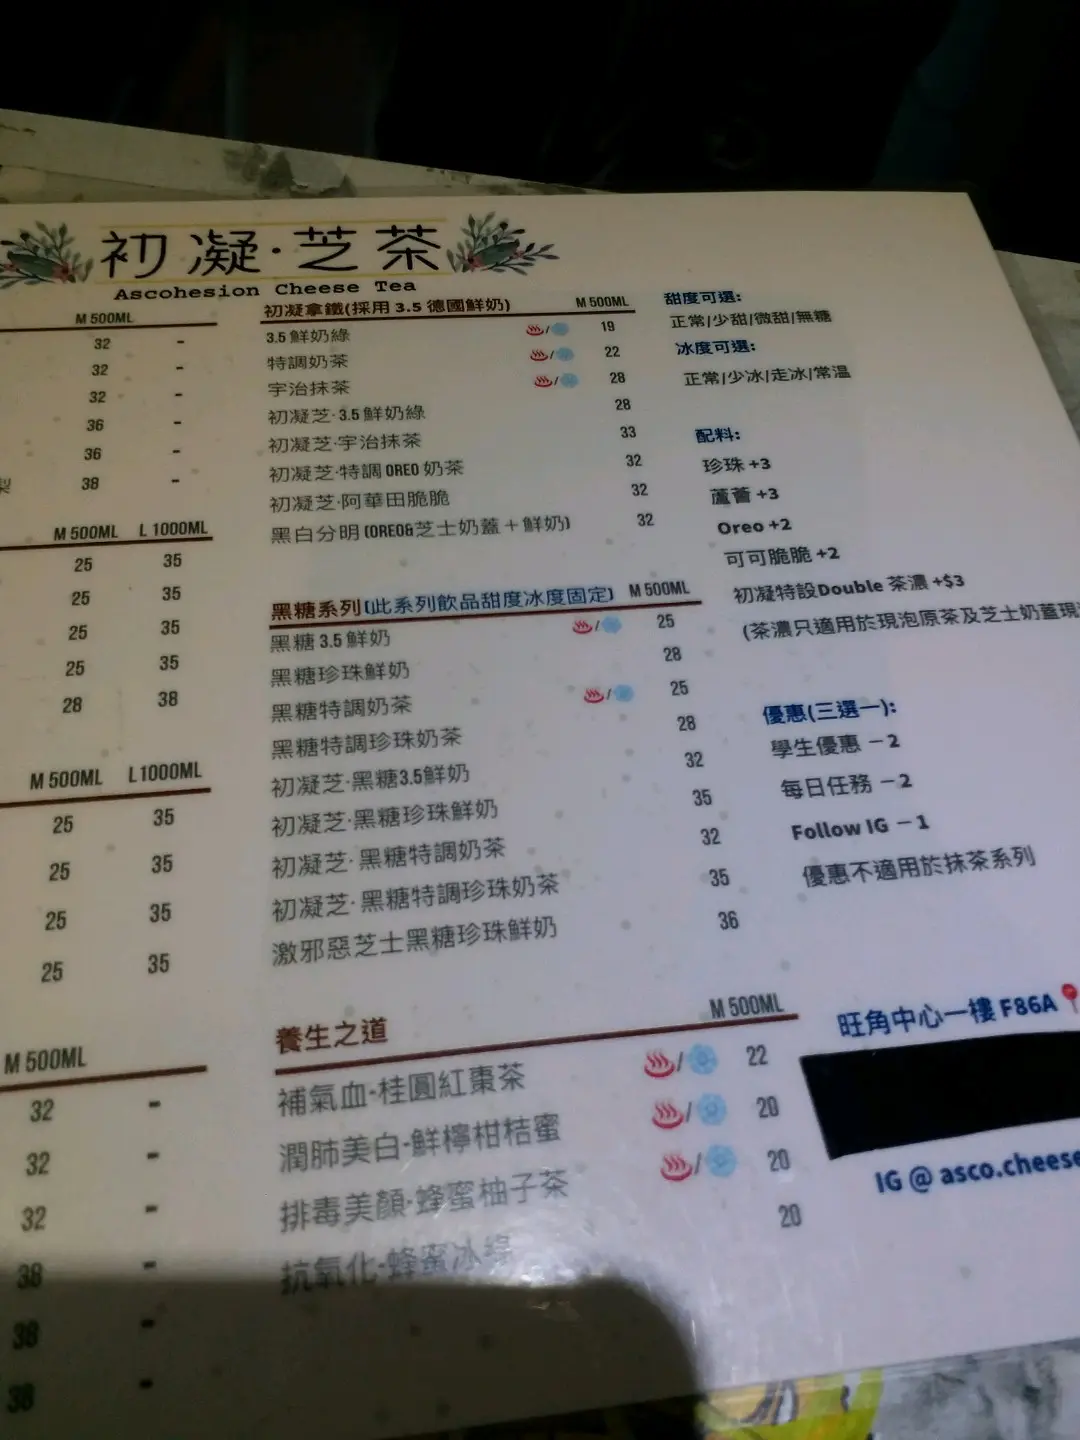 初凝·芝茶
Ascohesion Cheese Tea
M 500ML
32 -
32 -
32 -
36 -
36 -
梨 38 -
M 500ML L 1000ML
25 35
25 35
25 35
25 35
28 38
M 500ML L1000ML
25 35
25 35
25 35
25 35
M 500ML
32 -
32 -
32 -
38 -
38 -
38 -
初凝拿鐵(採用 3.5 德國鮮奶) M 500ML
3.5 鮮奶綠 ♨/ 19
特調奶茶 ♨/ 22
宇治抹茶 ♨/ 28
初凝芝·3.5 鮮奶綠 28
初凝芝·宇治抹茶 33
初凝芝·特調 OREO 奶茶 32
初凝芝·阿華田脆脆 32
黑白分明 (OREO&芝士奶蓋＋鮮奶) 32
黑糖系列(此系列飲品甜度冰度固定) M 500ML
黑糖 3.5 鮮奶 ♨/ 25
黑糖珍珠鮮奶 28
黑糖特調奶茶 ♨/ 25
黑糖特調珍珠奶茶 28
初凝芝·黑糖3.5鮮奶 32
初凝芝·黑糖珍珠鮮奶 35
初凝芝·黑糖特調奶茶 32
初凝芝·黑糖特調珍珠奶茶 35
激邪惡芝士黑糖珍珠鮮奶 36
養生之道 M 500ML
補氣血-桂圓紅棗茶 ♨/ 22
潤肺美白-鮮檸柑桔蜜 ♨/ 20
排毒美顏·蜂蜜柚子茶 ♨/ 20
抗氧化-蜂蜜冰綠 20
甜度可選:
正常/少甜/微甜/無糖
冰度可選:
正常/少冰/走冰/常温
配料:
珍珠 +3
蘆薈 +3
Oreo +2
可可脆脆 +2
初凝特設Double 茶濃 +$3
(茶濃只適用於現泡原茶及芝士奶蓋現
優惠(三選一):
學生優惠 －2
每日任務 －2
Follow IG －1
優惠不適用於抹茶系列
旺角中心一樓 F86A
IG @ asco.cheese